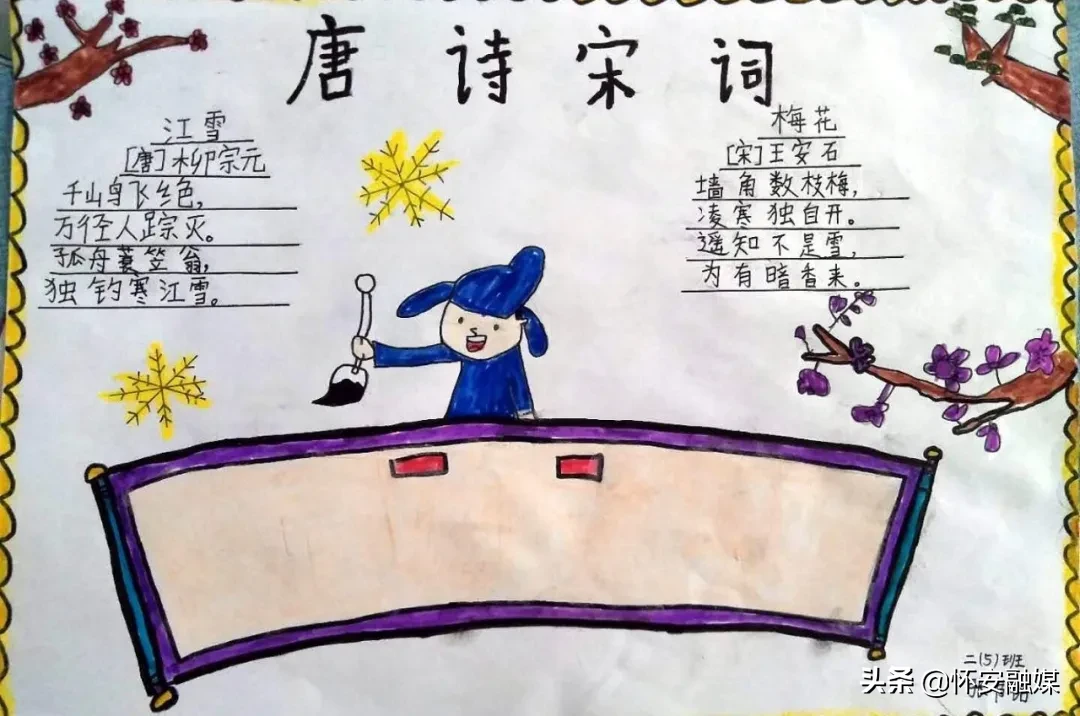 唐诗宋词
江雪
[唐]柳宗元
千山鸟飞绝,
万径人踪灭。
孤舟蓑笠翁,
独钓寒江雪。
梅花
[宋]王安石
墙角数枝梅,
凌寒独自开。
遥知不是雪,
为有暗香来。
二(5)班
头条 @怀安融媒